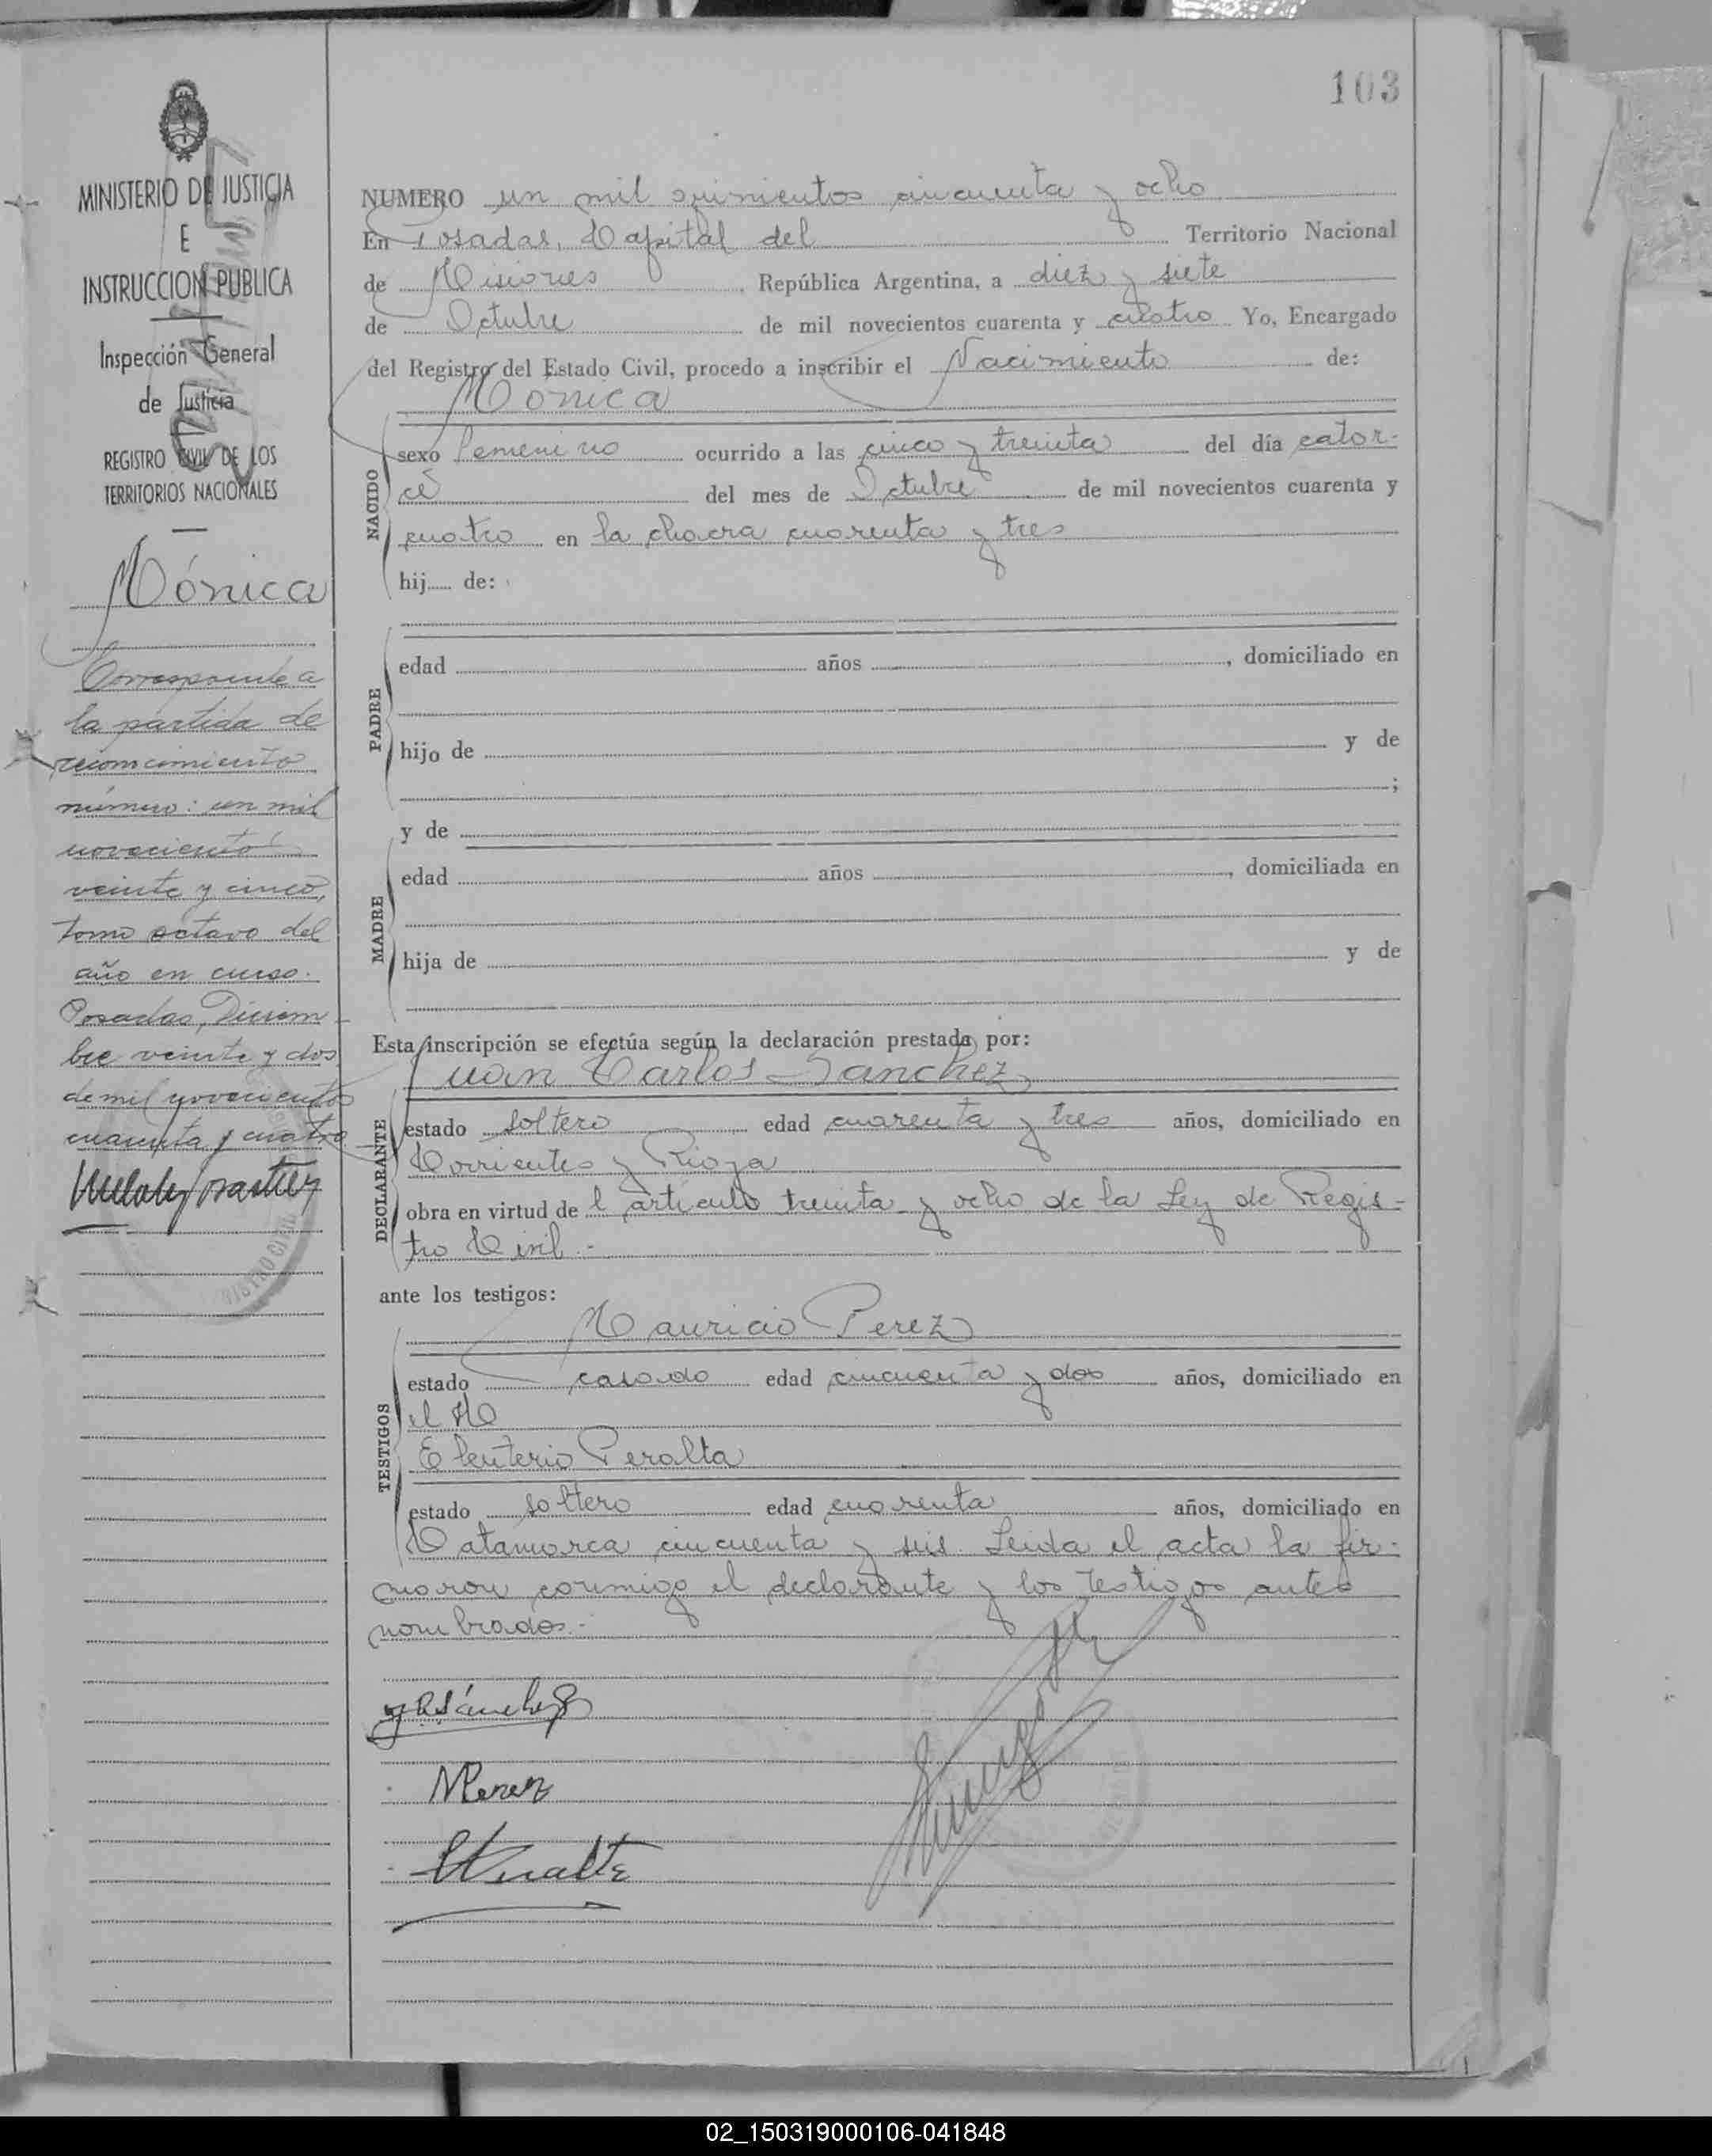 103
MINISTERIO DE JUSTICIA
E
INSTRUCCION PUBLICA
Inspección General
de Justicia
REGISTRO CIVIL DE LOS
TERRITORIOS NACIONALES
Mónica
Corresponde a
la partida de
reconocimiento
número: un mil
novecientos
veinte y cinco,
tomo octavo del
año en curso.
Posadas, Diciem
bre veinte y dos
de mil novecientos
cuarenta y cuatro
NUMERO un mil quinientos cincuenta y ocho
En Posadas, Capital del Territorio Nacional
de Misiones, República Argentina, a diez y siete
de Octubre de mil novecientos cuarenta y cuatro Yo, Encargado
del Registro del Estado Civil, procedo a inscribir el Nacimiento de:
Mónica
NACIDO
sexo femenino ocurrido a las cinco y treinta del día cator-
ce del mes de Octubre de mil novecientos cuarenta y
cuatro en la chacra cuarenta y tres
hij de:
PADRE
edad años , domiciliado en
hijo de y de
;
MADRE
y de
edad años , domiciliada en
hija de y de
Esta inscripción se efectúa según la declaración prestada por:
Juan Carlos Sanchez
DECLARANTE
estado soltero edad cuarenta y tres años, domiciliado en
Corrientes y Rioja
obra en virtud de l artículo treinta y ocho de la Ley de Regis-
tro Civil.-
ante los testigos:
Mauricio Perez
TESTIGOS
estado casado edad cincuenta y dos años, domiciliado en
el
Eleuterio Peralta
estado soltero edad cuarenta años, domiciliado en
Catamarca cincuenta y seis. Leida el acta la fir-
maron conmigo el declarante y los testigos antes
nombrados.-
J C Sánchez
MPerez
EPeralta
02_150319000106-041848